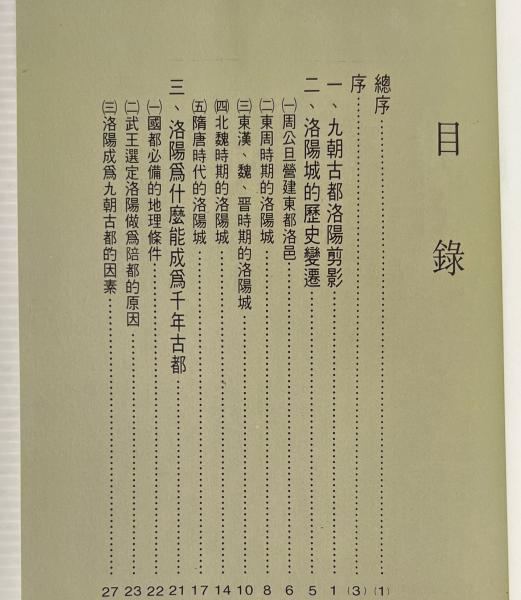 目錄
總序……(1)
序……(3)
一、九朝古都洛陽剪影……1
二、洛陽城的歷史變遷……5
㈠周公旦營建東都洛邑……6
㈡東周時期的洛陽城……8
㈢東漢、魏、晉時期的洛陽城……10
㈣北魏時期的洛陽城……14
㈤隋唐時代的洛陽城……17
三、洛陽爲什麼能成爲千年古都……21
㈠國都必備的地理條件……22
㈡武王選定洛陽做爲陪都的原因……23
㈢洛陽成爲九朝古都的因素……27